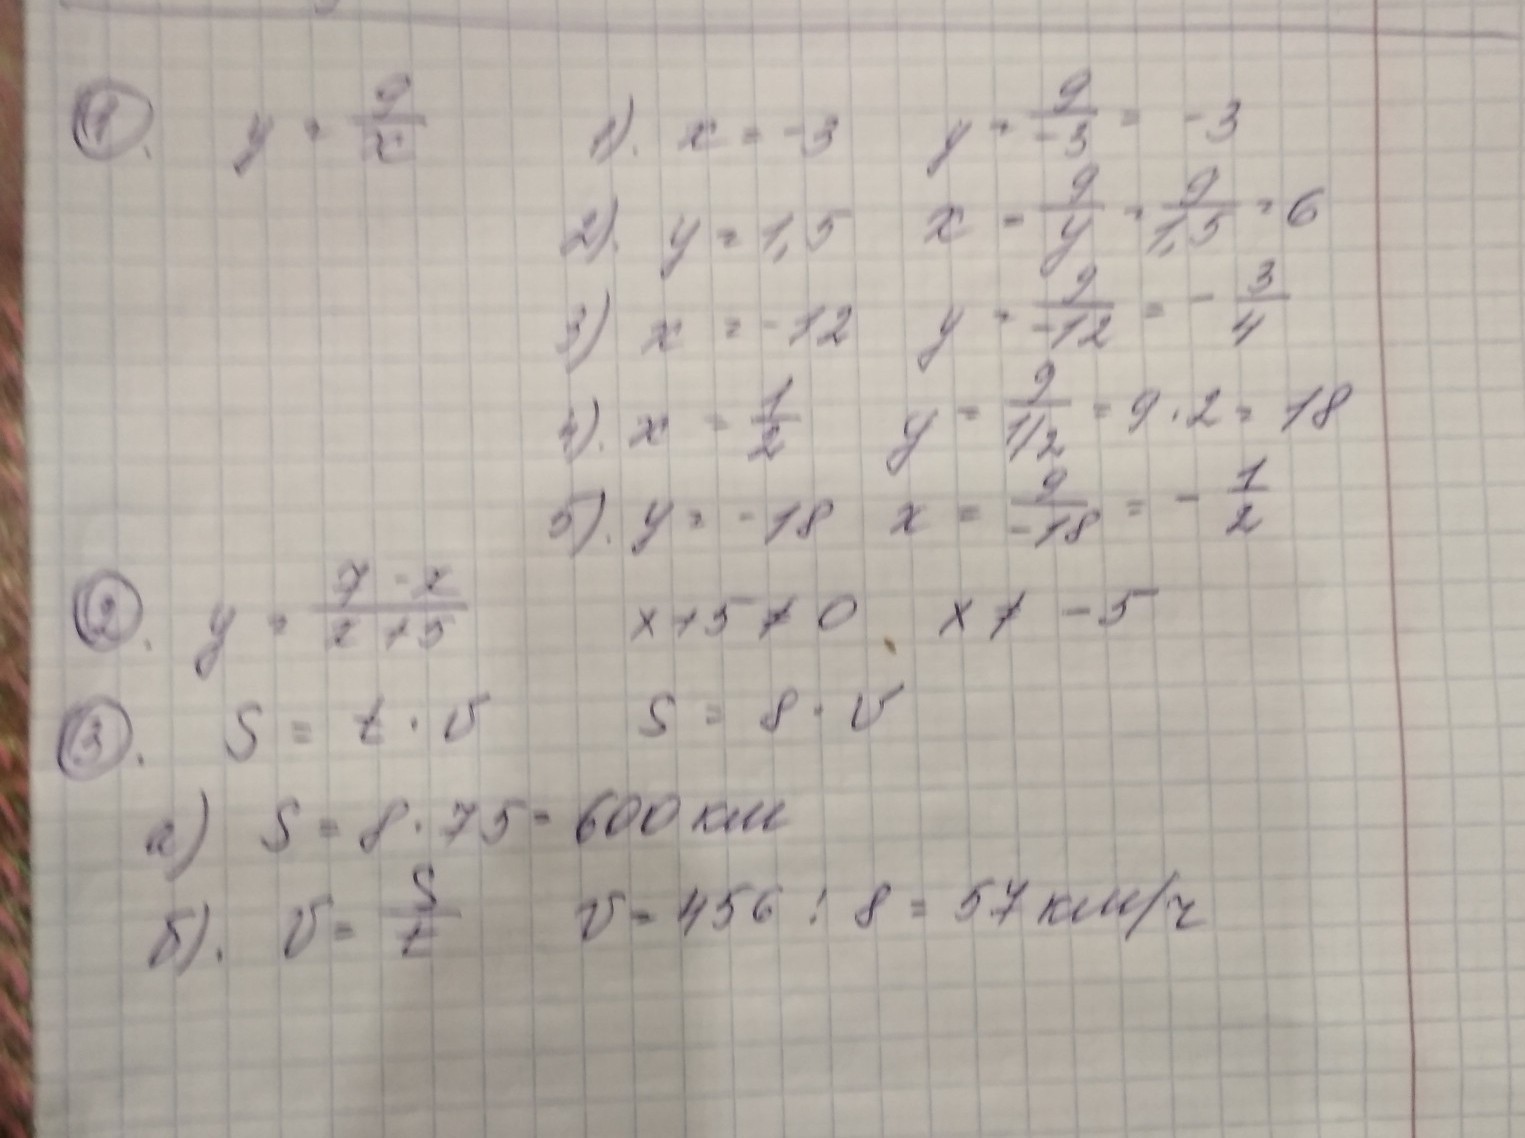 1. y = 9/x 1). x = -3 y = 9/-3 = -3
2). y = 1,5 x = 9/y = 9/1,5 = 6
3) x = -12 y = 9/-12 = - 3/4
4). x = 1/2 y = 9/1/2 = 9 · 2 = 18
5). y = -18 x = 9/-18 = - 1/2
2. y = 7 - x/x + 5 x + 5 ≠ 0 x ≠ -5
3. S = t · v S = 8 · v
а) S = 8 · 75 = 600 км
б). v = S/t v = 456 : 8 = 57 км/ч